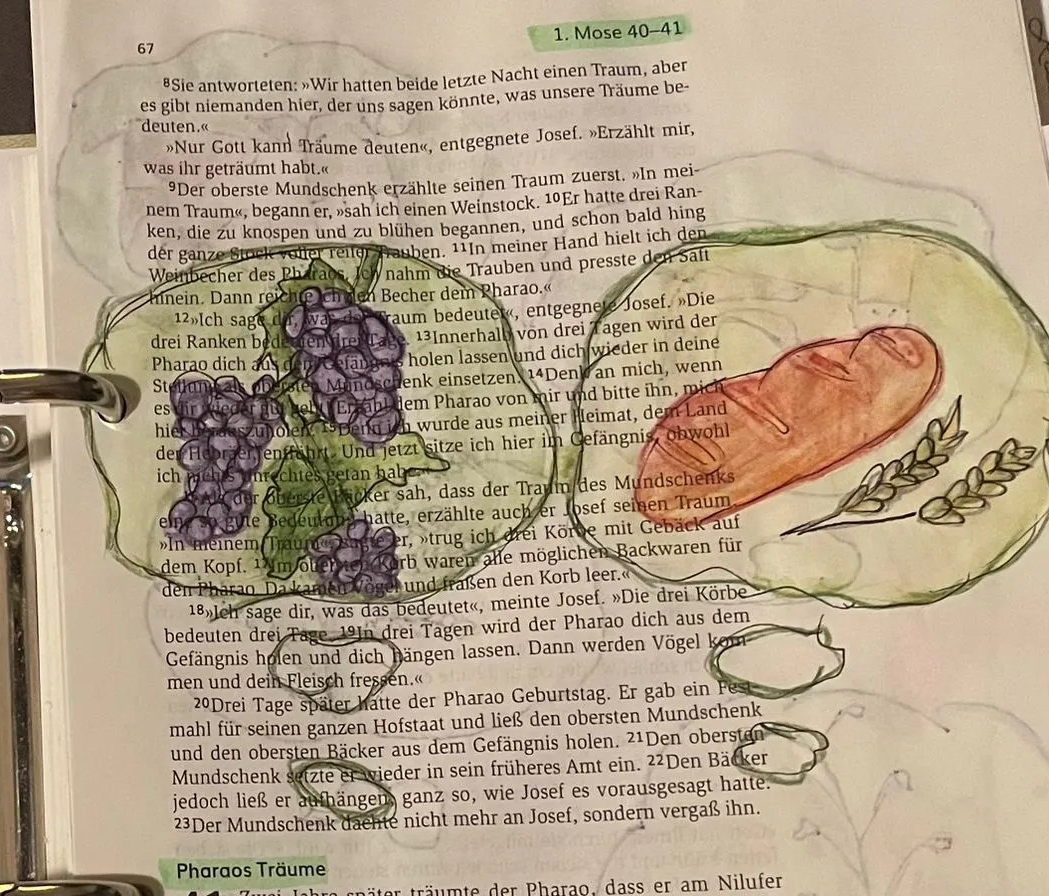 67
1. Mose 40–41
⁸Sie antworteten: »Wir hatten beide letzte Nacht einen Traum, aber
es gibt niemanden hier, der uns sagen könnte, was unsere Träume be-
deuten.«
»Nur Gott kann Träume deuten«, entgegnete Josef. »Erzählt mir,
was ihr geträumt habt.«
⁹Der oberste Mundschenk erzählte seinen Traum zuerst. »In mei-
nem Traum«, begann er, »sah ich einen Weinstock. ¹⁰Er hatte drei Ran-
ken, die zu knospen und zu blühen begannen, und schon bald hing
der ganze Stock voller reifer Trauben. ¹¹In meiner Hand hielt ich den
Weinbecher des Pharaos, ich nahm die Trauben und presste den Saft
hinein. Dann reichte ich den Becher dem Pharao.«
¹²»Ich sage dir, was der Traum bedeutet«, entgegnete Josef. »Die
drei Ranken bedeuten drei Tage. ¹³Innerhalb von drei Tagen wird der
Pharao dich aus dem Gefängnis holen lassen und dich wieder in deine
Stellung als oberster Mundschenk einsetzen. ¹⁴Denk an mich, wenn
es dir wieder gut geht. Erzähl dem Pharao von mir und bitte ihn, mich
hier herauszuholen. ¹⁵Denn ich wurde aus meiner Heimat, dem Land
der Hebräer, entführt. Und jetzt sitze ich hier im Gefängnis, obwohl
ich nichts Unrechtes getan habe.«
¹⁶Als der oberste Bäcker sah, dass der Traum des Mundschenks
eine so gute Bedeutung hatte, erzählte auch er Josef seinen Traum.
»In meinem Traum«, sagte er, »trug ich drei Körbe mit Gebäck auf
dem Kopf. ¹⁷Im obersten Korb waren alle möglichen Backwaren für
den Pharao. Da kamen Vögel und fraßen den Korb leer.«
¹⁸»Ich sage dir, was das bedeutet«, meinte Josef. »Die drei Körbe
bedeuten drei Tage. ¹⁹In drei Tagen wird der Pharao dich aus dem
Gefängnis holen und dich hängen lassen. Dann werden Vögel kom-
men und dein Fleisch fressen.«
²⁰Drei Tage später hatte der Pharao Geburtstag. Er gab ein Fest-
mahl für seinen ganzen Hofstaat und ließ den obersten Mundschenk
und den obersten Bäcker aus dem Gefängnis holen. ²¹Den obersten
Mundschenk setzte er wieder in sein früheres Amt ein. ²²Den Bäcker
jedoch ließ er aufhängen, ganz so, wie Josef es vorausgesagt hatte.
²³Der Mundschenk dachte nicht mehr an Josef, sondern vergaß ihn.
Pharaos Träume
41 Zwei Jahre später träumte der Pharao, dass er am Nilufer